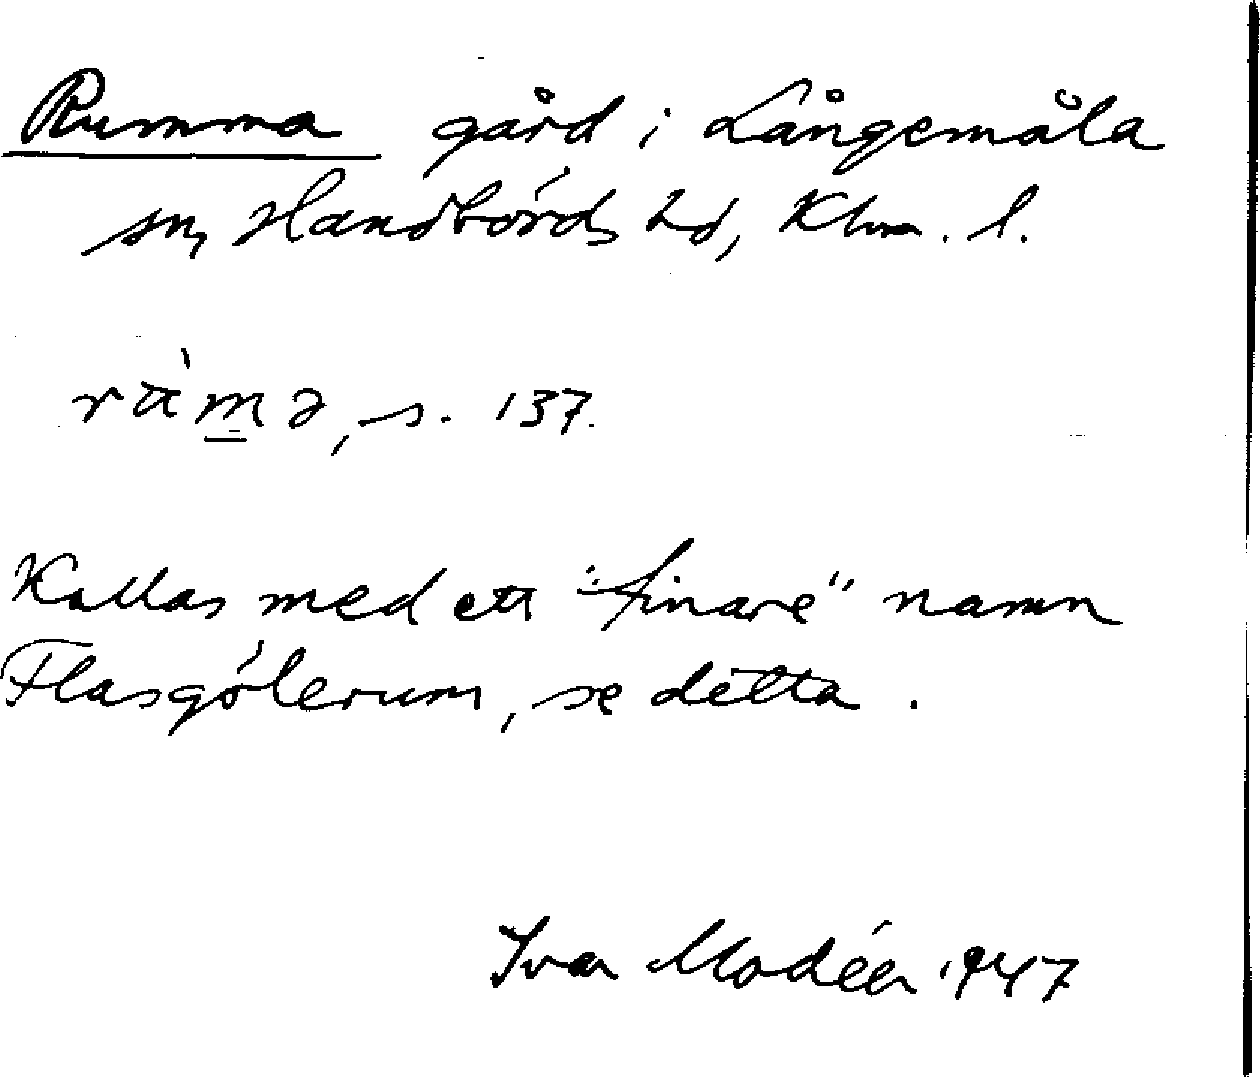 Rumma gård i Långemåla
sn, Handbörds hd, Klm. l.
s. 137.
Kallas med ett "finare" namn
Flasgölerum, se detta.
Ivar Modéer 1947